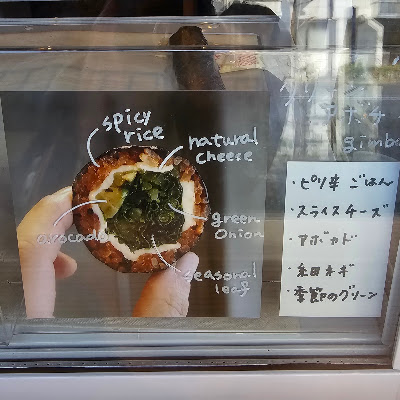 spicy
rice
natural
cheese
avocado
green
onion
seasonal
leaf
gimba
・ピリ辛 ごはん
・スライスチーズ
・アボカド
・細ネギ
・季節のグリーン